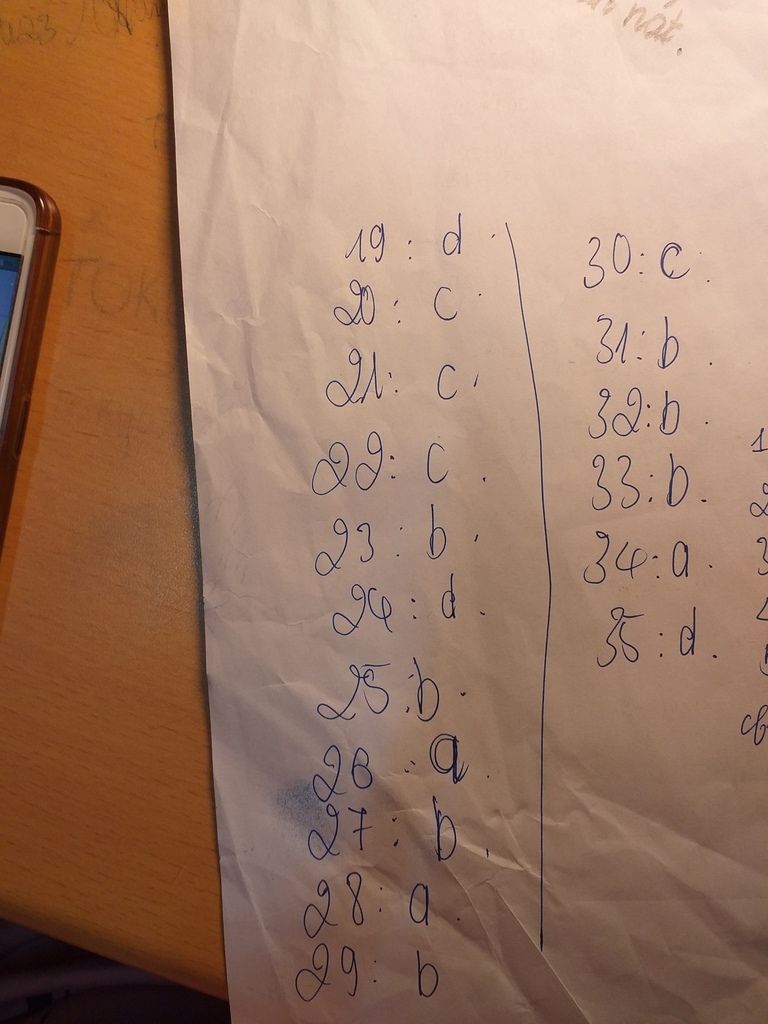 nát.
19: d.
20: c.
21: c.
22: c.
23: b.
24: d.
25: b.
26: a.
27: b.
28: a.
29: b
30: c.
31: b.
32: b.
33: b.
34: a.
35: d.
TOK